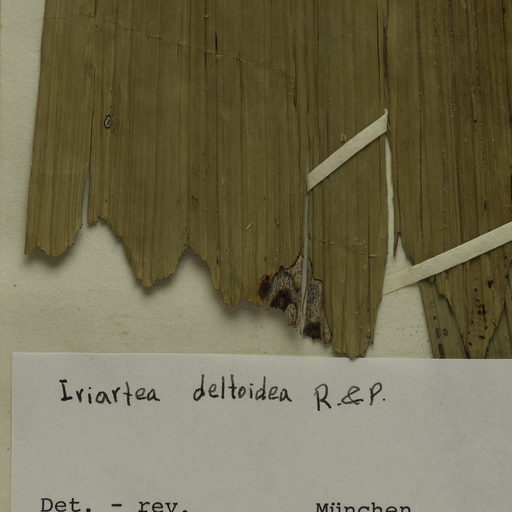 Iriartea deltoidea R.&P.
Det. - rev. München